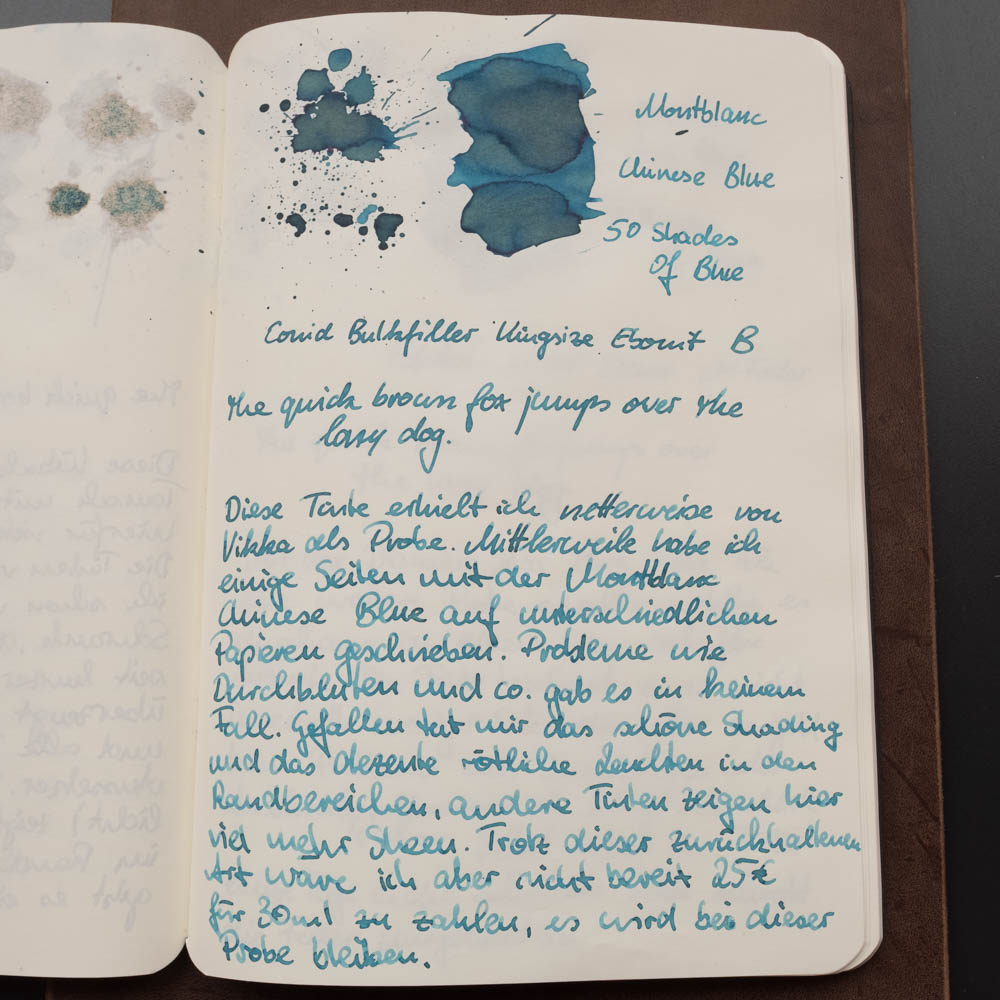 Montblanc
Chinese Blue
50 Shades
Of Blue
Conid Bulkfiller Kingsize Ebonit B
the quick brown fox jumps over the
lazy dog.
Diese Tinte erhielt ich netterweise von
Vikka als Probe. Mittlerweile habe ich
einige Seiten mit der Montblanc
Chinese Blue auf unterschiedlichen
Papieren geschrieben. Probleme wie
Durchbluten und co. gab es in keinem
Fall. Gefallen tut mir das schöne Shading
und das dezente rötliche Leuchten in den
Randbereichen, andere Tinten zeigen hier
viel mehr Sheen. Trotz dieser zurückhaltenen
Art wäre ich aber nicht bereit 25€
für 30ml zu zahlen, es wird bei dieser
Probe bleiben.